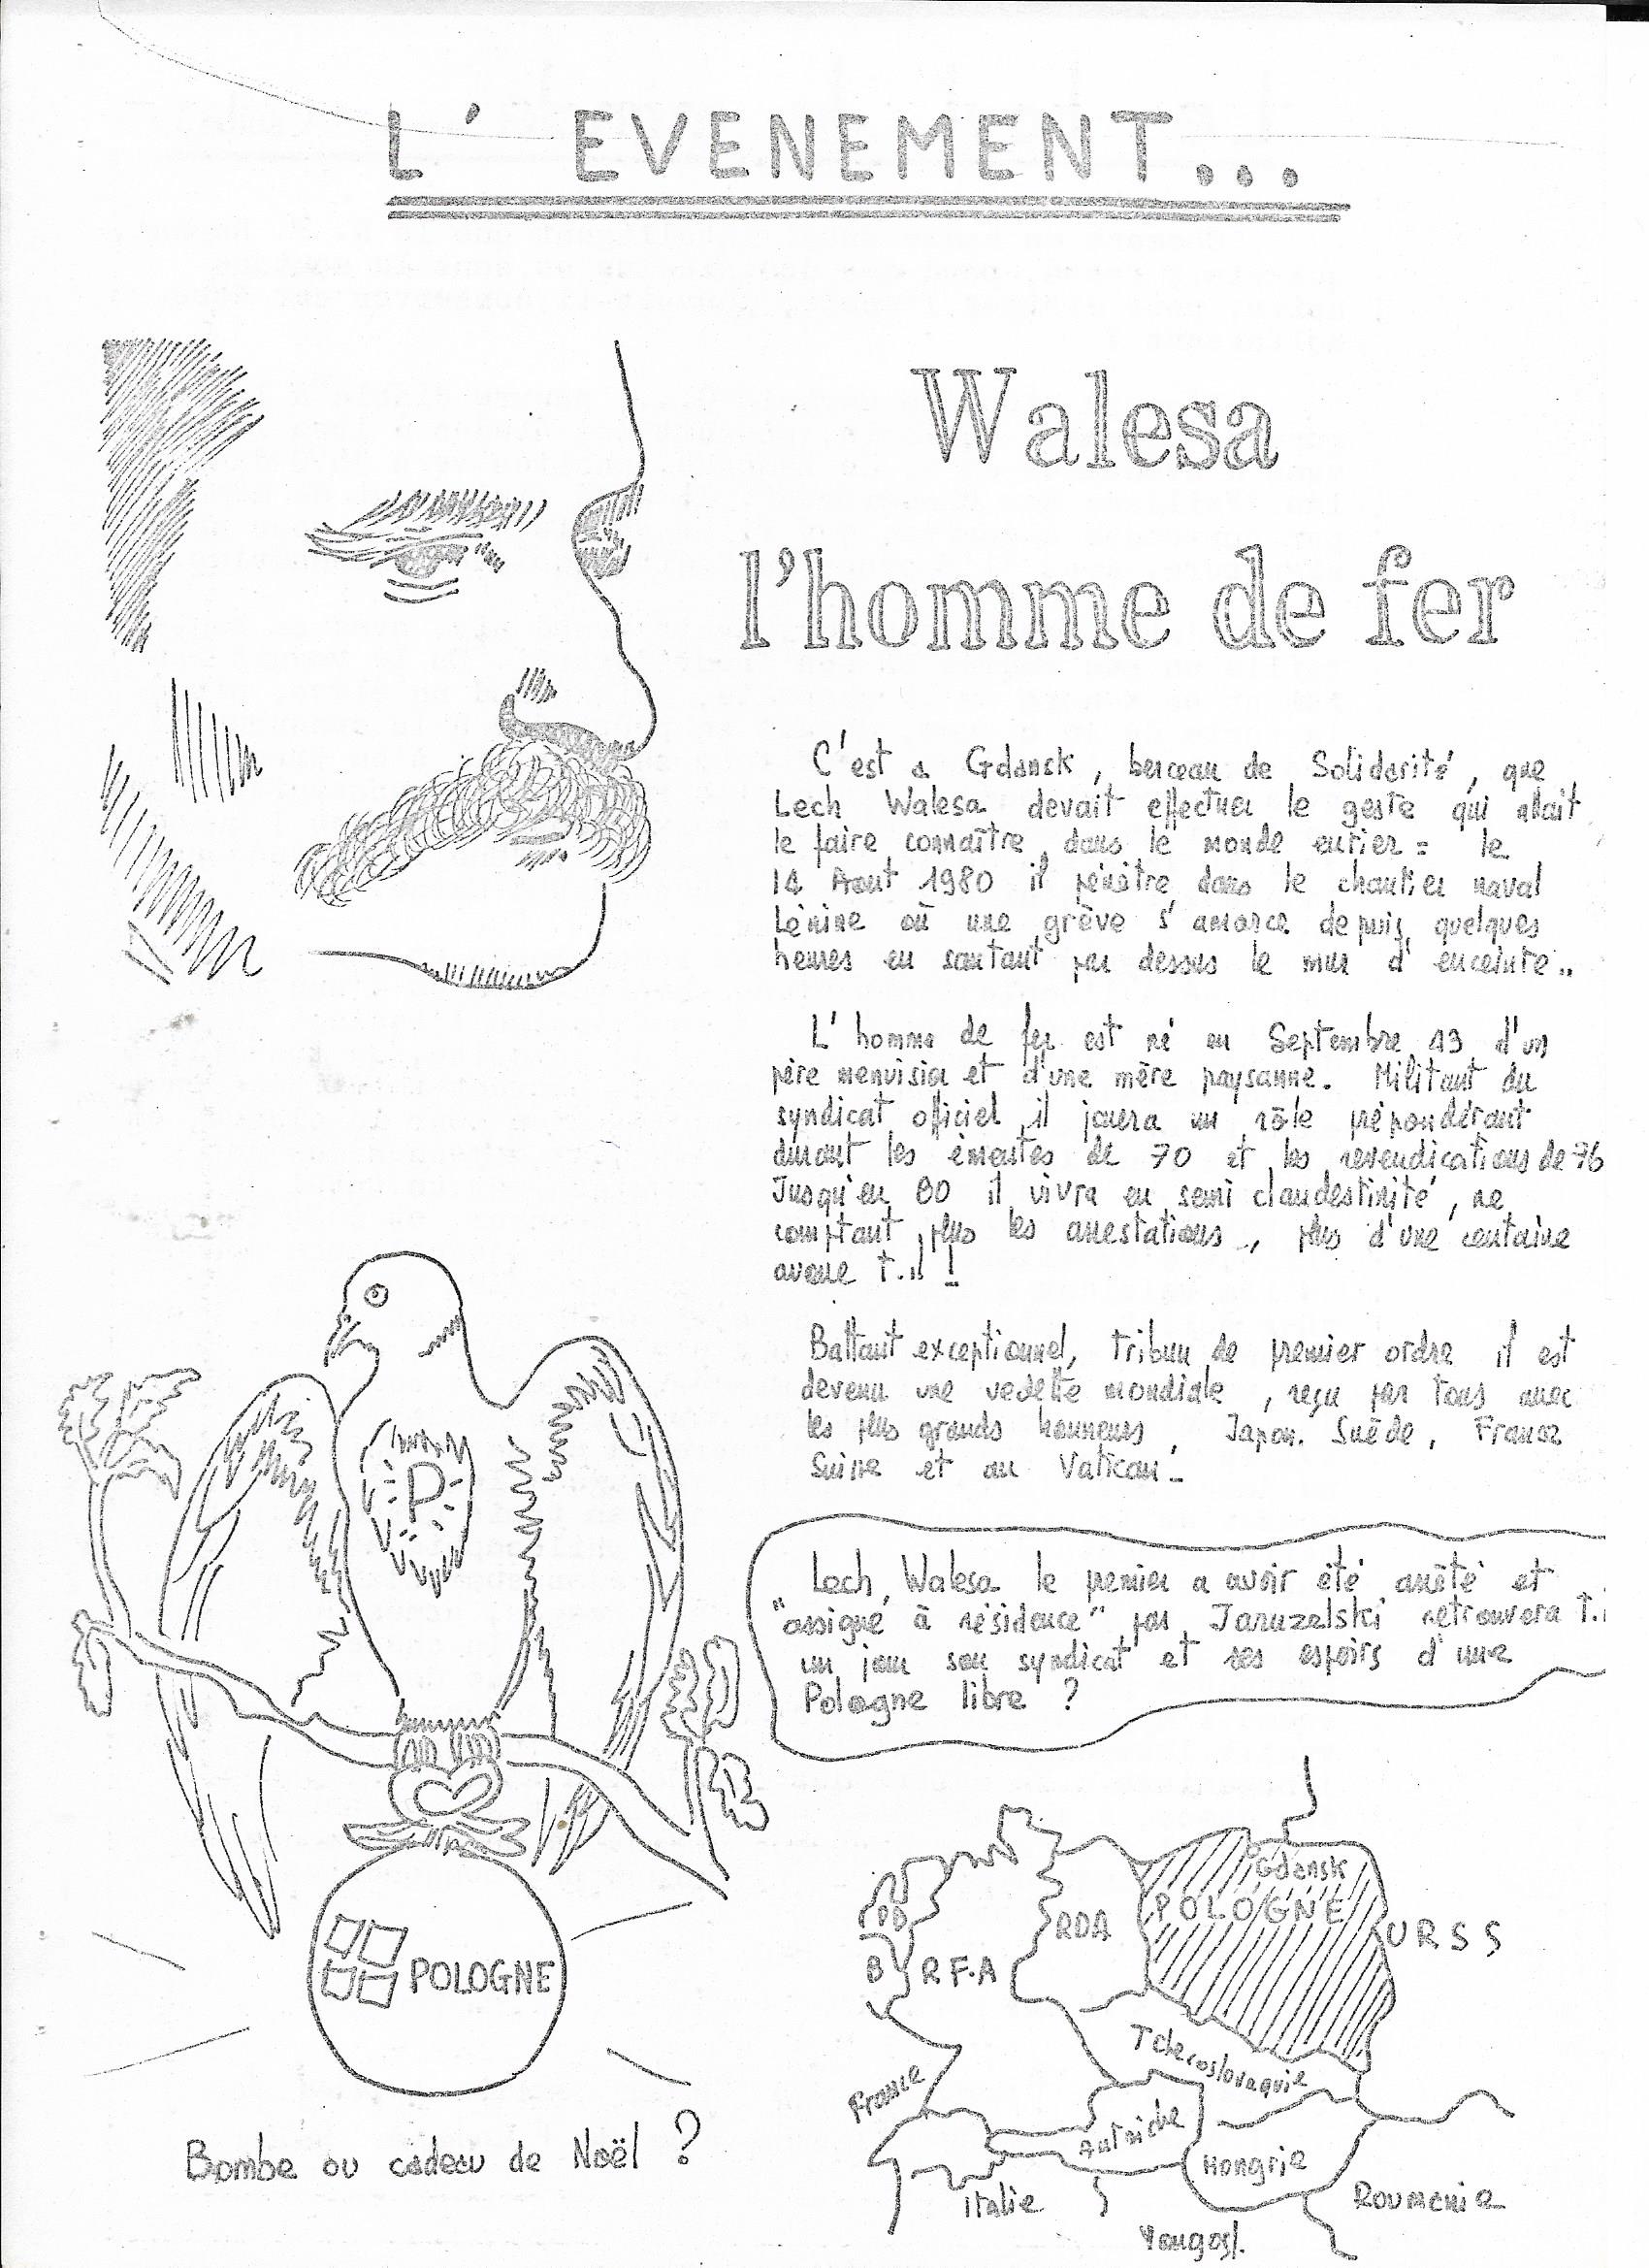 L' EVENEMENT...
Walesa
l'homme de fer
C'est a Gdansk, berceau de Solidarité, que
Lech Walesa devait effectuer le geste qui allait
le faire connaître dans le monde entier : le
14 Aout 1980 il pénètre dans le chantier naval
Lénine où une grève s'amorce depuis quelques
heures en sautant par dessus le mur d'enceinte..
L'homme de fer est né en Septembre 43 d'un
père menuisier et d'une mère paysanne. Militant du
syndicat oficiel il jouera un rôle prépondérant
durant les émeutes de 70 et les revendications de 76
Jusqu'en 80 il vivra en semi clandestinité, ne
comptant plus les arrestations.., plus d'une centaine
avoue t.il !
Battant exceptionnel, tribun de premier ordre il est
devenu une vedette mondiale, reçu par tous avec
les plus grands honneurs, Japon. Suède, France
Suisse et au Vatican.
Lech Walesa le premier a avoir été arrêté et
"assigné à résidence" par Jaruzelski retrouvera t.i
un jour son syndicat et ses espoirs d'une
Pologne libre ?
P
POLOGNE
Bombe ou cadeau de Noël ?
Gdansk
POLOGNE
RDA
URSS
B
R.F.A
Tchecoslovaquie
France
Autriche
Hongrie
Italie
Roumanie
Yougosl.